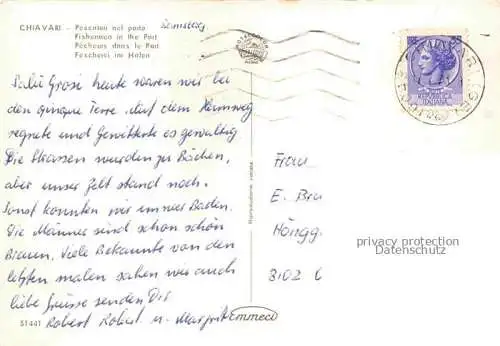 CHIAVARI - Pescatori nel porto
Fishermen in the Port
Pêcheurs dans le Port
Fescherei im Hafen
Samstag
Salü Grosi heute waren wir bei
den Cinque Terre, auf dem Heimweg
regnete und Gewitterte es gewaltig
Die Strassen wurden zu Bächen,
aber unser Zelt stand noch.
Sonst konnten wir immer Baden.
Die Männer sind schon schön
Braun. Viele Bekannte von den
letzten malen sahen wir auch
liebe Grüsse senden Dir
Robert Robert u. Margrit
51441
Emmeci
Frau
E. Bru
Höngg
8102
privacy protection
Datenschutz